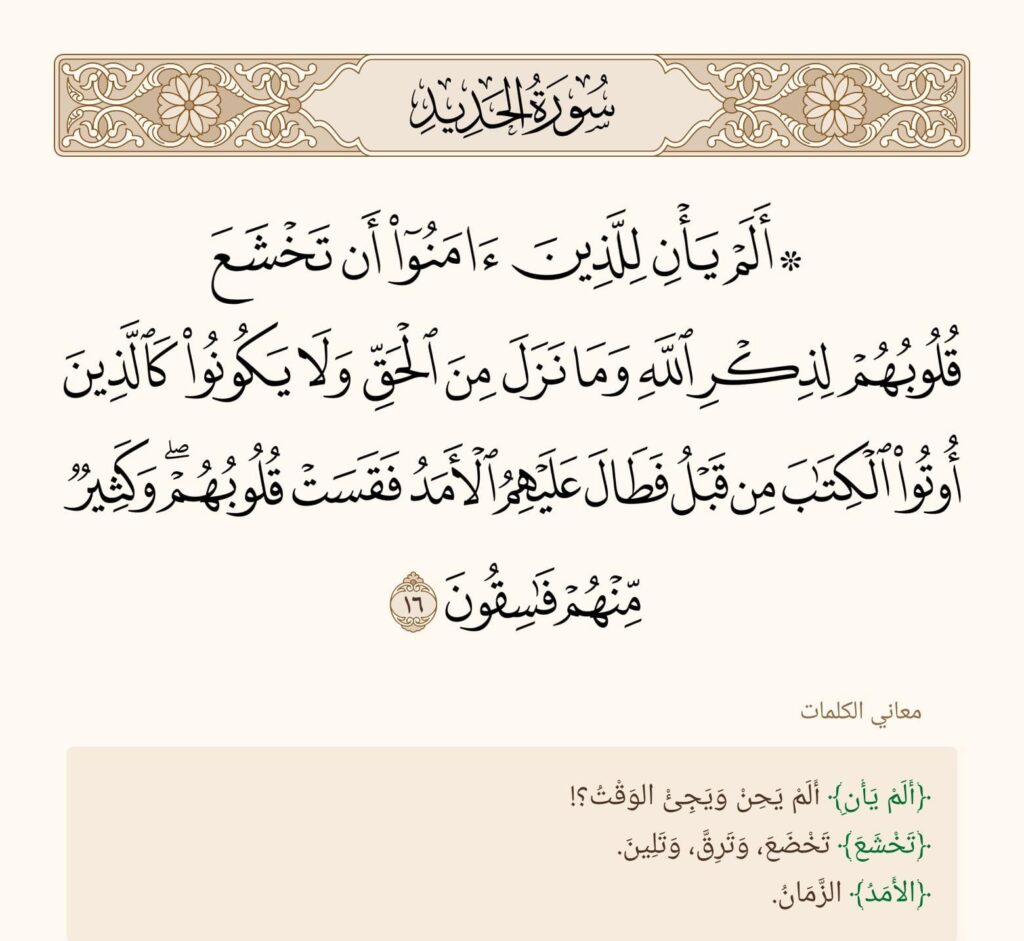 سُورَةُ الحَدِيدِ
۞ أَلَمۡ يَأۡنِ لِلَّذِينَ ءَامَنُوٓاْ أَن تَخۡشَعَ
قُلُوبُهُمۡ لِذِكۡرِ ٱللَّهِ وَمَا نَزَلَ مِنَ ٱلۡحَقِّ وَلَا يَكُونُواْ كَٱلَّذِينَ
أُوتُواْ ٱلۡكِتَٰبَ مِن قَبۡلُ فَطَالَ عَلَيۡهِمُ ٱلۡأَمَدُ فَقَسَتۡ قُلُوبُهُمۡۖ وَكَثِيرٞ
مِّنۡهُمۡ فَٰسِقُونَ ١٦
معاني الكلمات
﴿أَلَمْ يَأْنِ﴾ أَلَمْ يَحِنْ وَيَجِئْ الوَقْتُ؟!
﴿تَخْشَعَ﴾ تَخْضَعَ، وَتَرِقَّ، وَتَلِينَ.
﴿الأَمَدُ﴾ الزَّمَانُ.